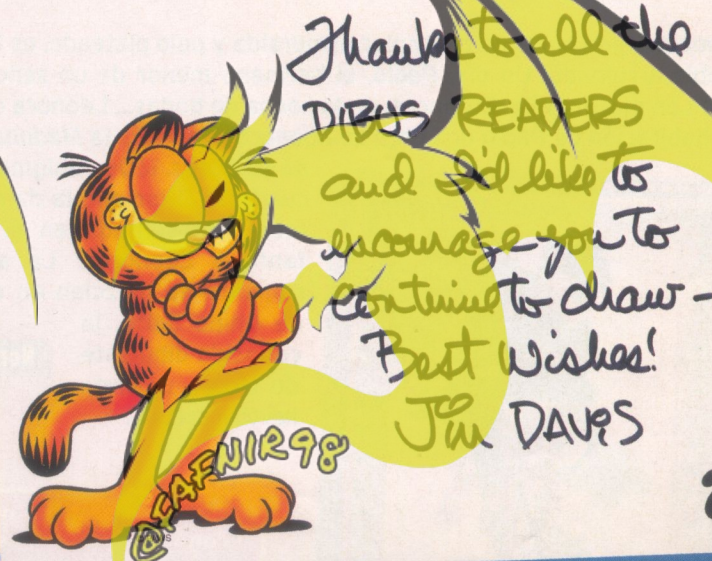 Thanks to all the
DIBUS READERS
and I'd like to
encourage you to
continue to draw -
Best Wishes!
Jim DAVIS
@FAFNIR98